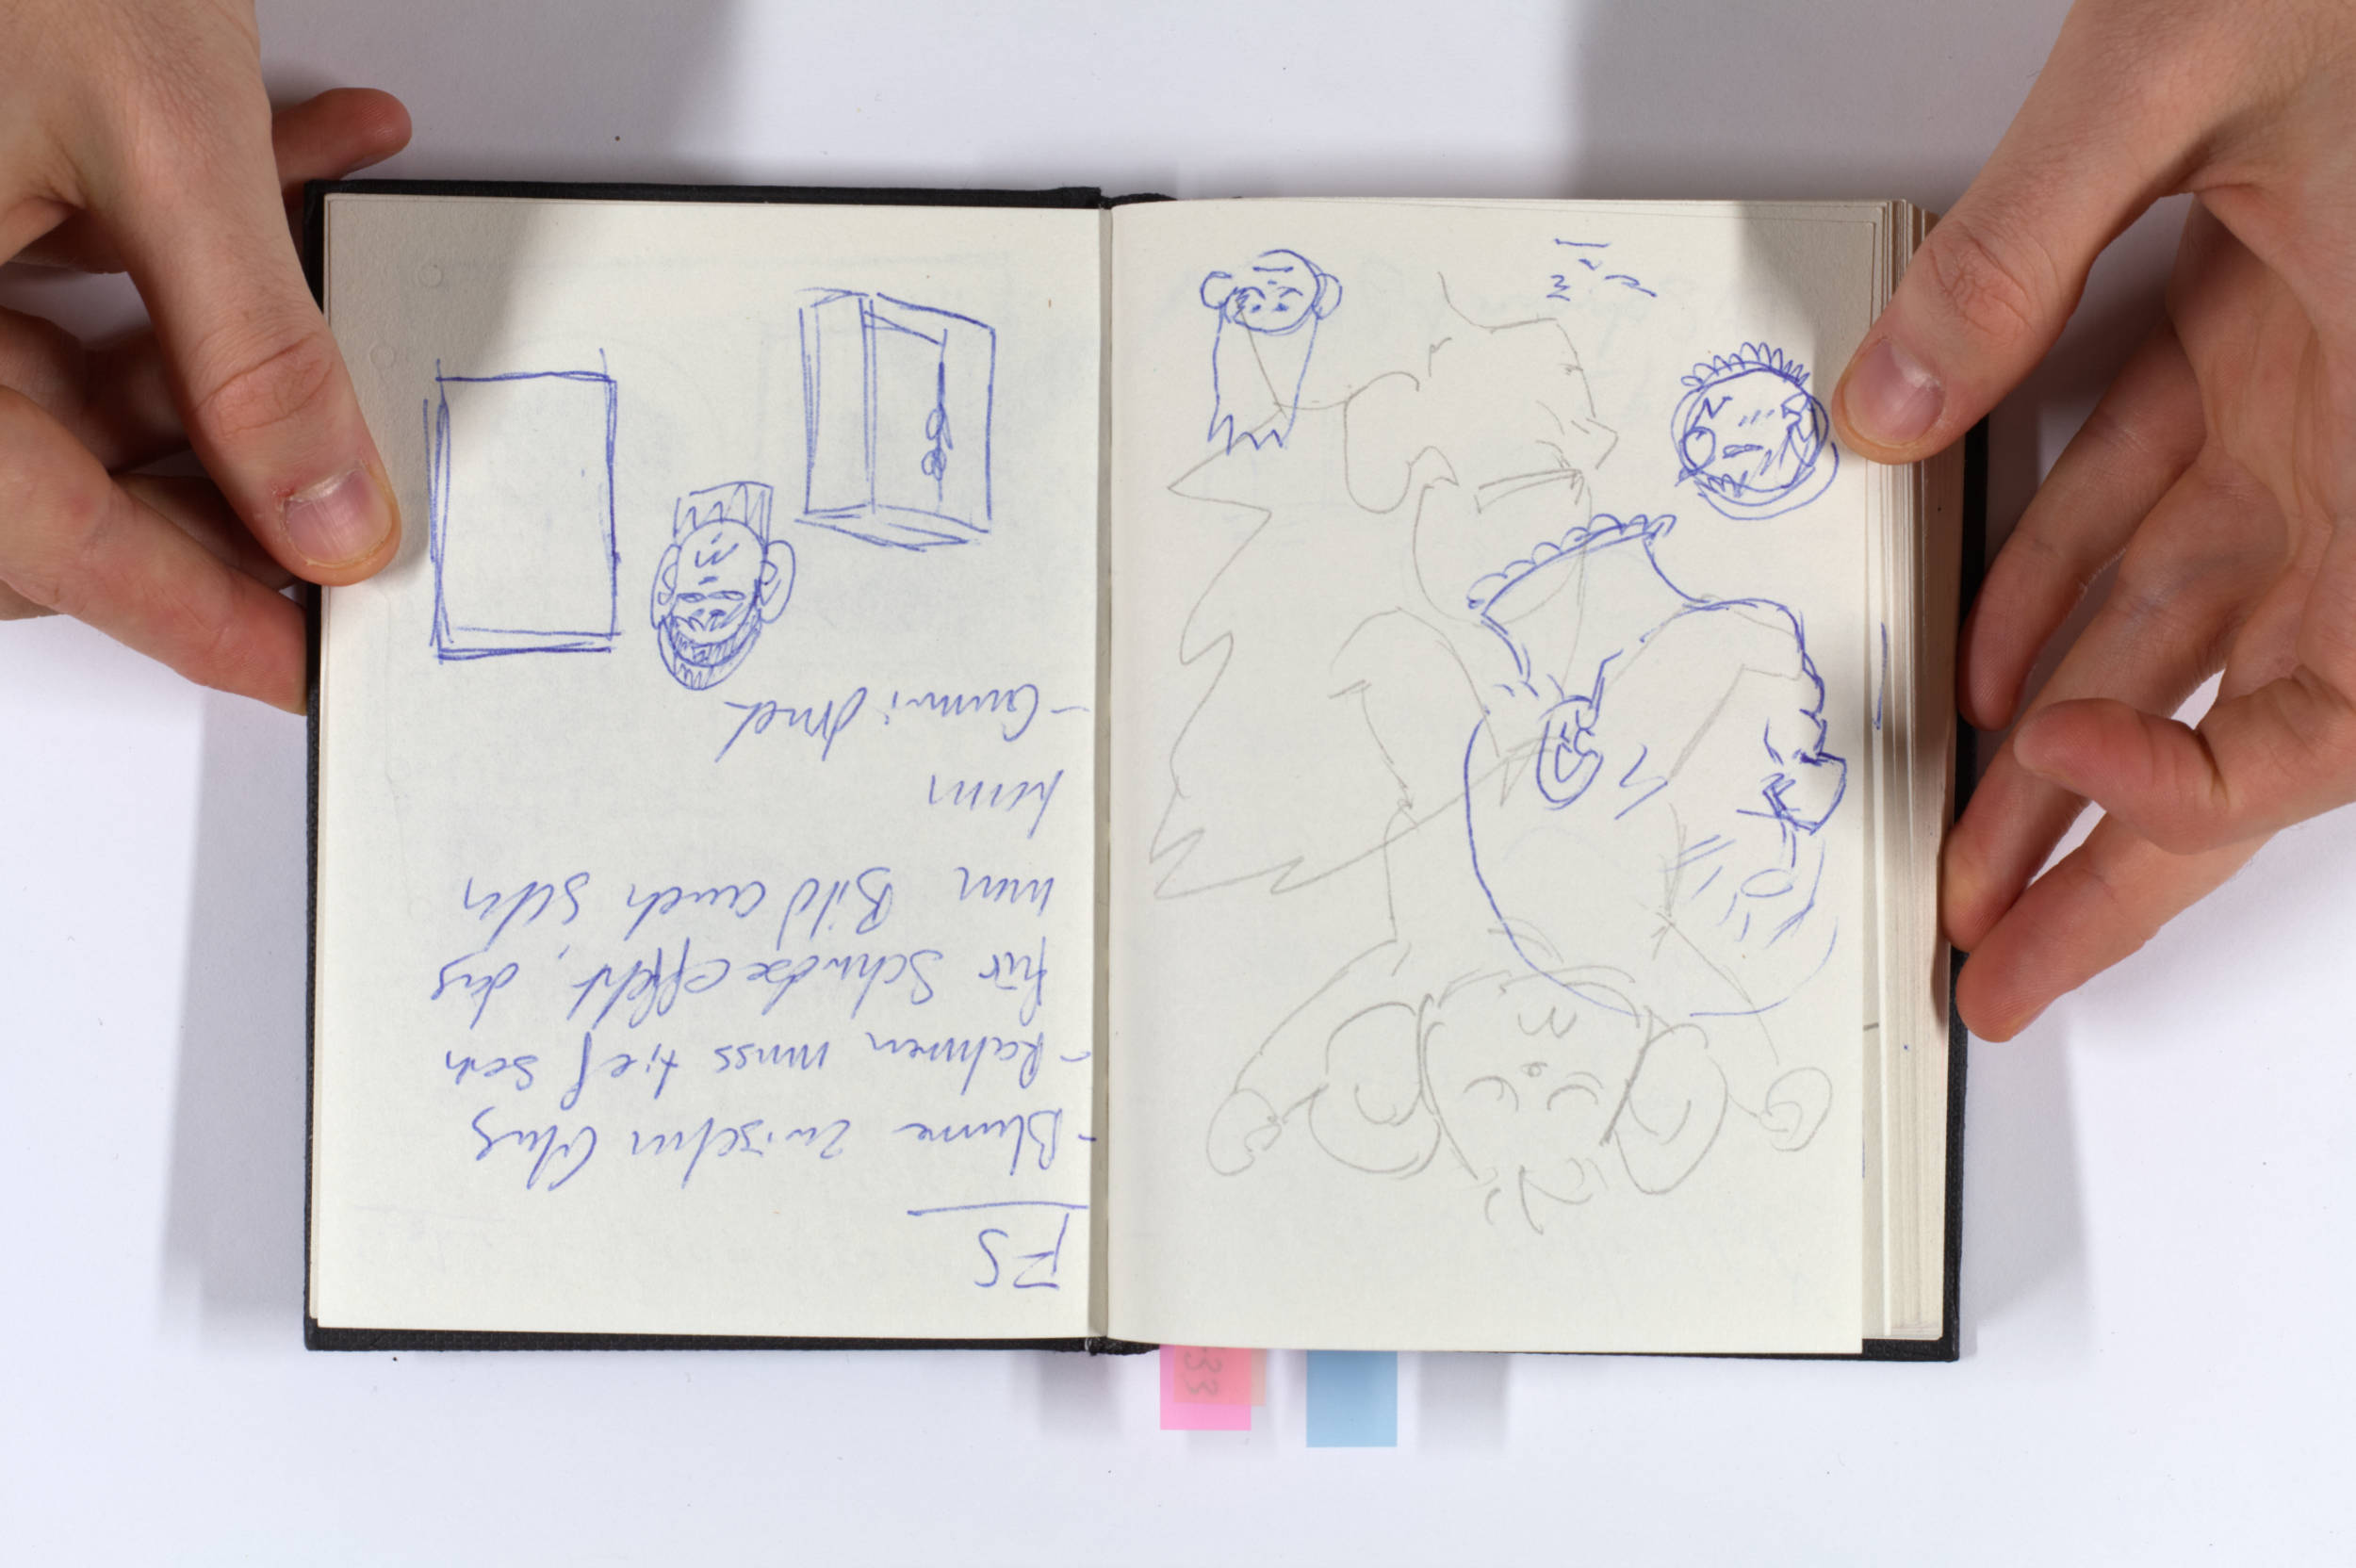 FS
- Blume zwischen Glas
- Rahmen muss tief sein
für Schattoeffekt, das
man Bild auch sehen
kann
- Gummi Druck
33